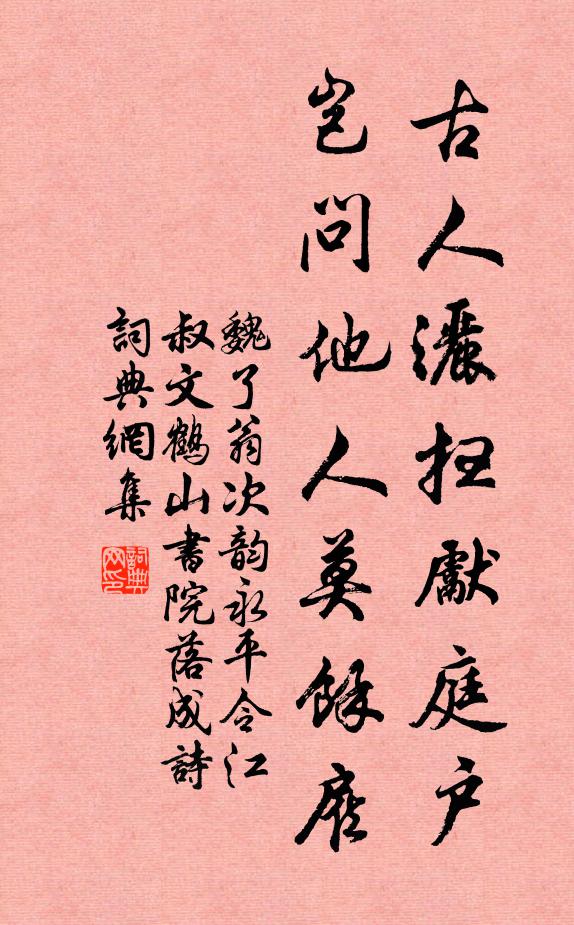 古人灑扫獻庭户
岂問他人莫餘
魏了翁次韵永平令江
叔文鶴山書院落成詩
詞典網集
詞典网印